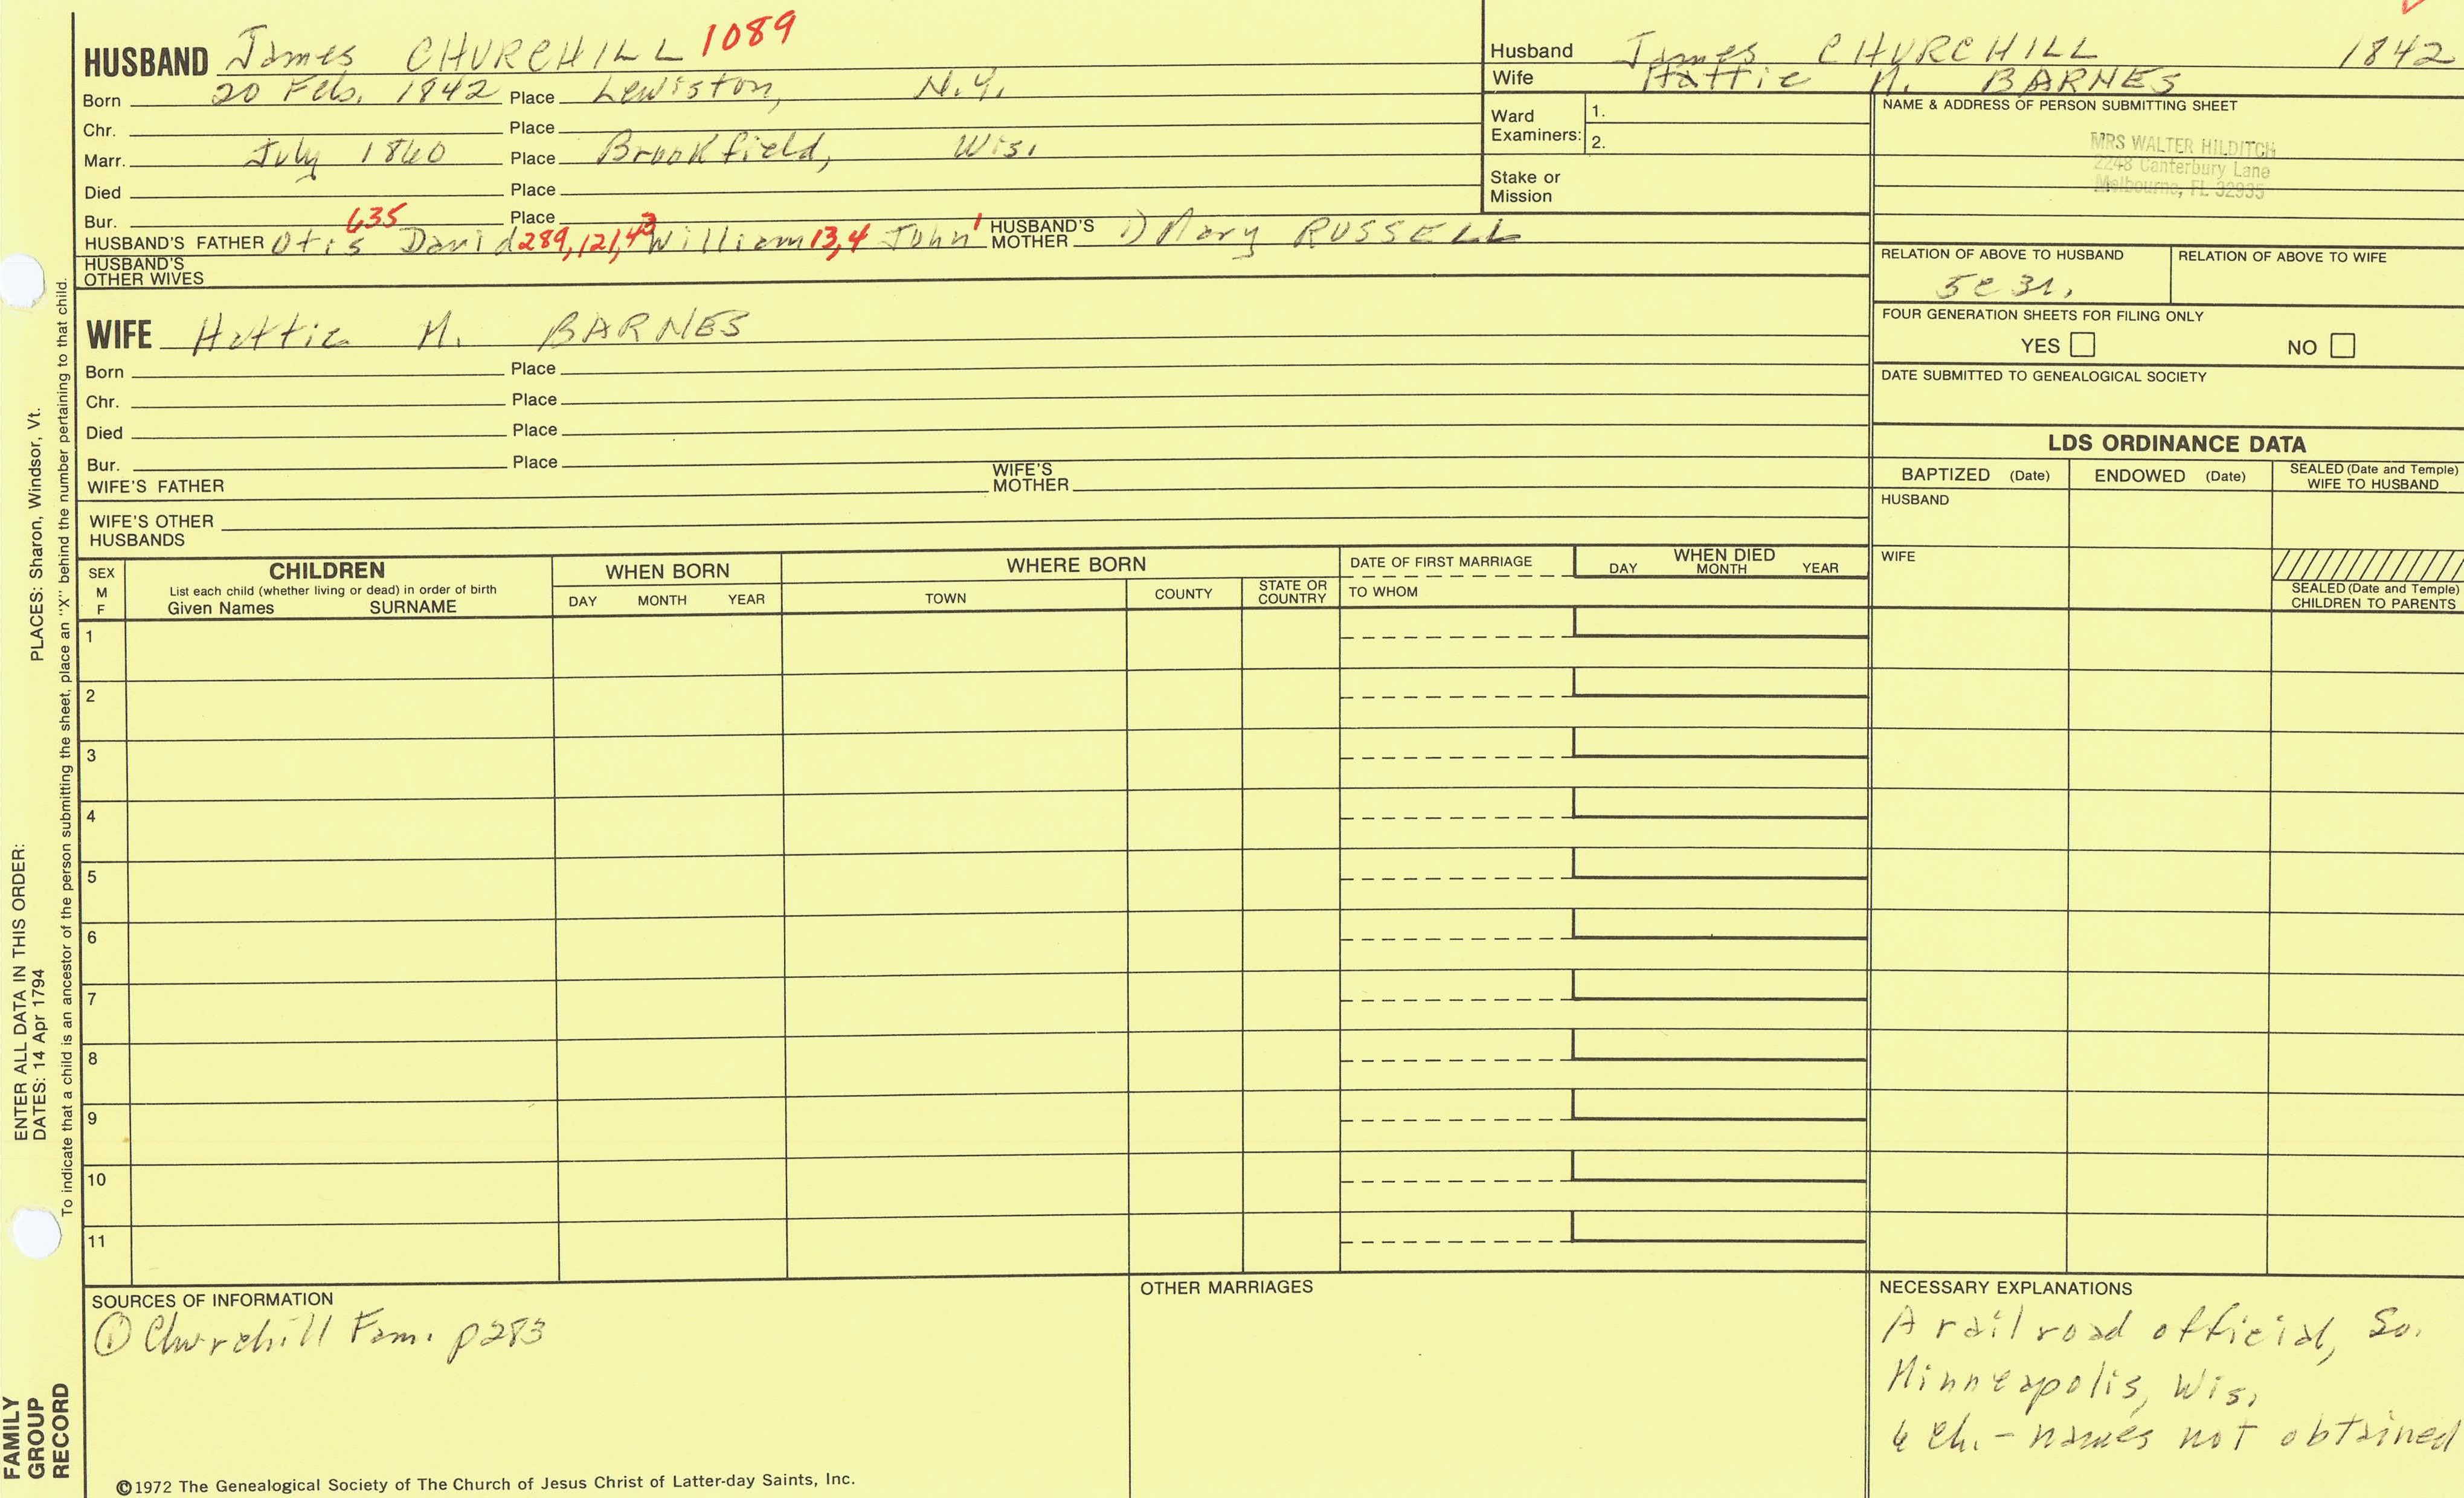 HUSBAND James CHURCHILL 1089
Born 20 Feb. 1842 Place Lewiston, N.Y.
Chr. Place
Marr. July 1860 Place Brookfield, Wis.
Died Place
Bur. Place
635
HUSBAND'S FATHER Otis David 289, 121, 43 William 13, 4 John 1 HUSBAND'S MOTHER 1) Mary RUSSELL
HUSBAND'S OTHER WIVES
Husband James CHURCHILL 1842
Wife Hattie M. BARNES
Ward Examiners: 1.
2.
Stake or Mission
NAME & ADDRESS OF PERSON SUBMITTING SHEET
MRS WALTER HILDITCH
2248 Canterbury Lane
Melbourne, FL 32935
RELATION OF ABOVE TO HUSBAND RELATION OF ABOVE TO WIFE
5c 3r.
FOUR GENERATION SHEETS FOR FILING ONLY
YES NO
DATE SUBMITTED TO GENEALOGICAL SOCIETY
WIFE Hattie M. BARNES
Born Place
Chr. Place
Died Place
Bur. Place
WIFE'S FATHER WIFE'S MOTHER
WIFE'S OTHER HUSBANDS
LDS ORDINANCE DATA
BAPTIZED (Date) ENDOWED (Date) SEALED (Date and Temple) WIFE TO HUSBAND
HUSBAND
WIFE
SEALED (Date and Temple) CHILDREN TO PARENTS
SEX M F
CHILDREN
List each child (whether living or dead) in order of birth
Given Names SURNAME
WHEN BORN
DAY MONTH YEAR
WHERE BORN
TOWN COUNTY STATE OR COUNTRY
DATE OF FIRST MARRIAGE
TO WHOM
WHEN DIED
DAY MONTH YEAR
1
2
3
4
5
6
7
8
9
10
11
SOURCES OF INFORMATION
① Churchill Fam. p283
OTHER MARRIAGES
NECESSARY EXPLANATIONS
A railroad official, So.
Minneapolis, Wis.
6 ch. - names not obtained
©1972 The Genealogical Society of The Church of Jesus Christ of Latter-day Saints, Inc.
FAMILY
GROUP
RECORD
ENTER ALL DATA IN THIS ORDER:
DATES: 14 Apr 1794
PLACES: Sharon, Windsor, Vt.
To indicate that a child is an ancestor of the person submitting the sheet, place an "X" behind the number pertaining to that child.